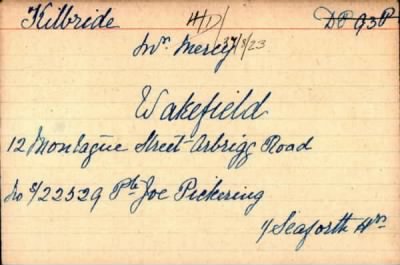 Kilbride HD/ DP 93P
Mrs. Mercy 37/8/23
Wakefield
12 Montague Street Arbrigg Road
No S/22529 Pte Joe Pickering
1/Seaforth Hrs